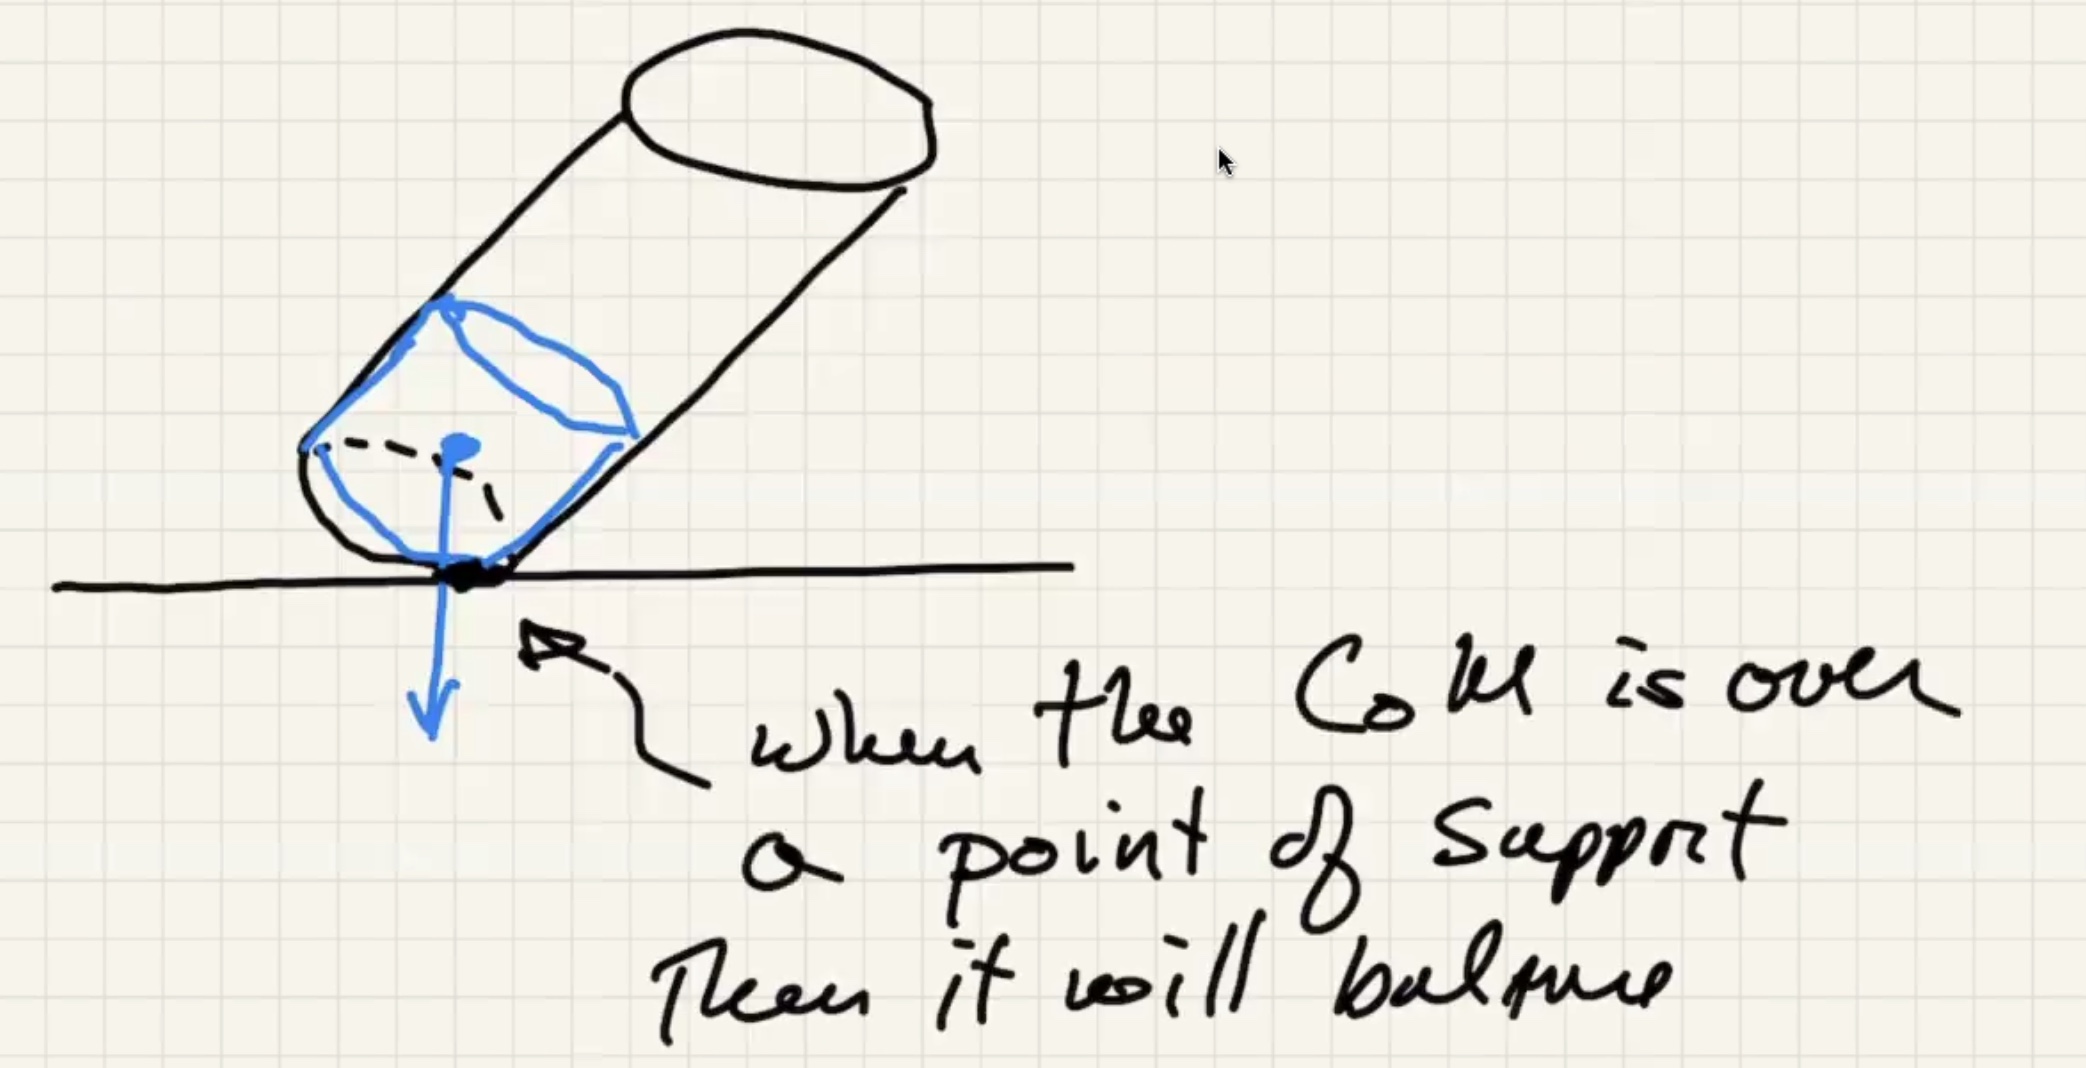 when the CoM is over
a point of support
Then it will balance